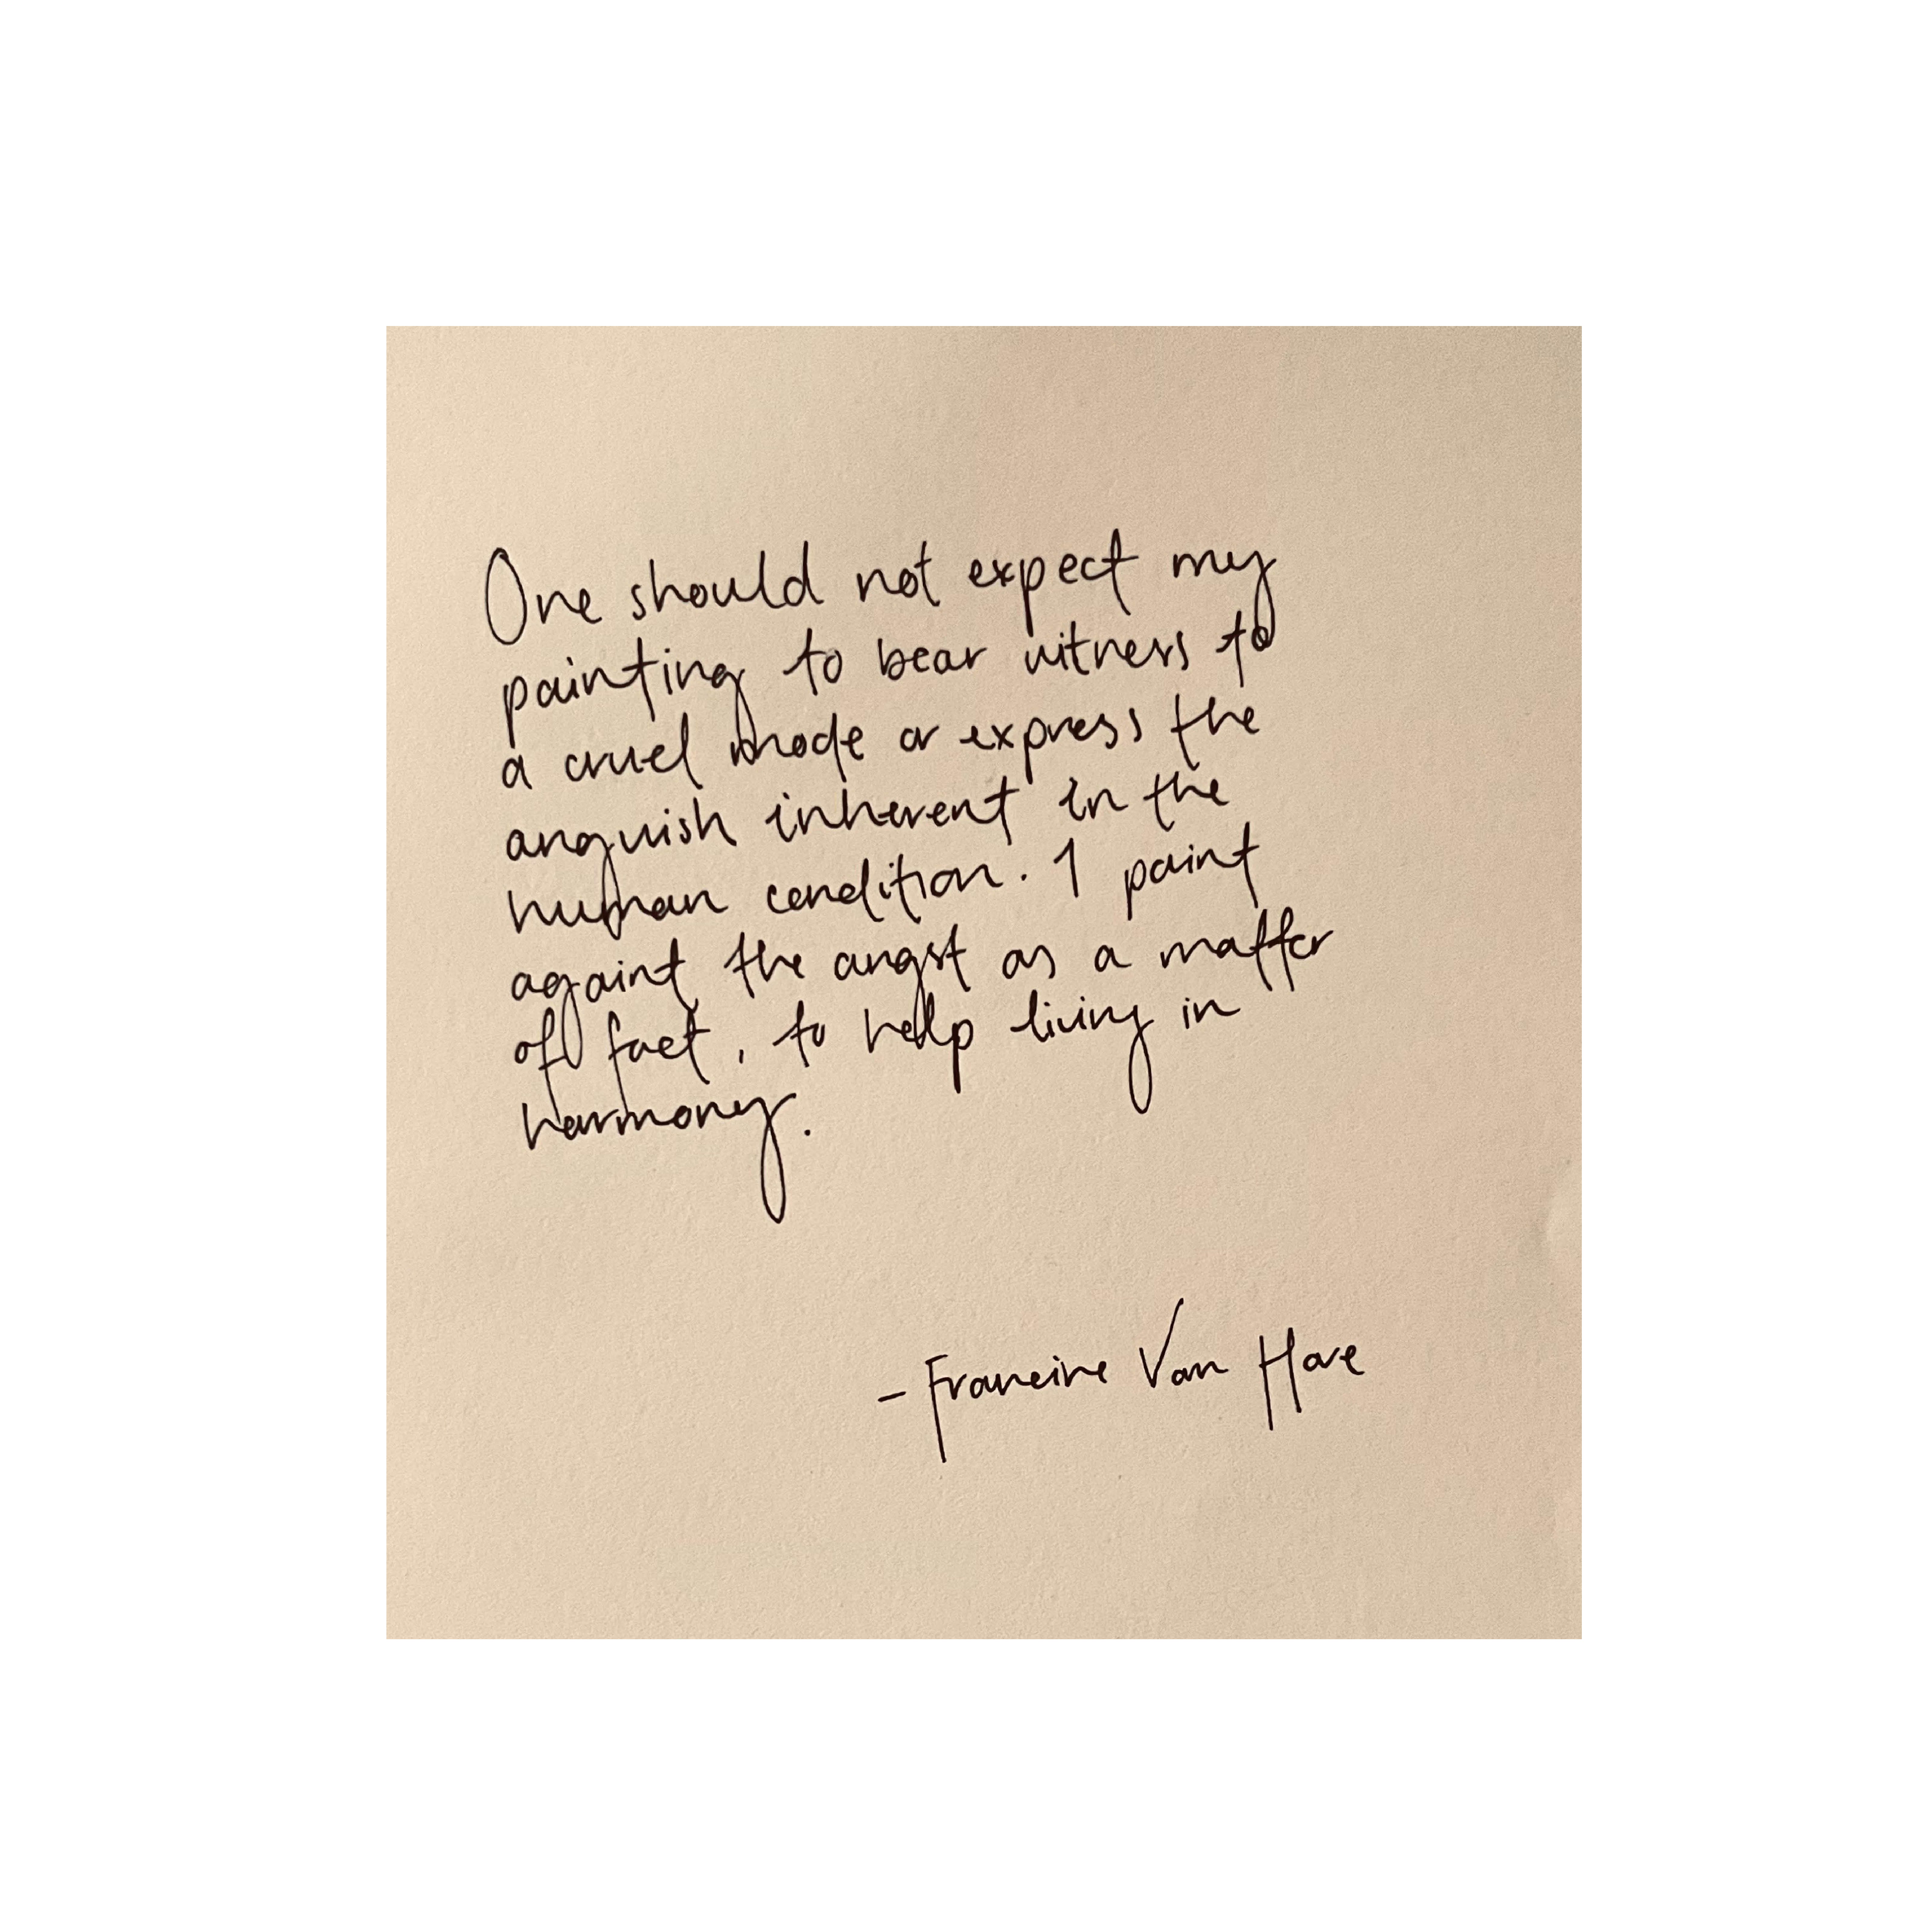 One should not expect my
painting to bear witness to
a cruel mode or express the
anguish inherent in the
human condition. I paint
againt the angst as a matter
of fact, to help living in
harmony.
- Francine Van Hove